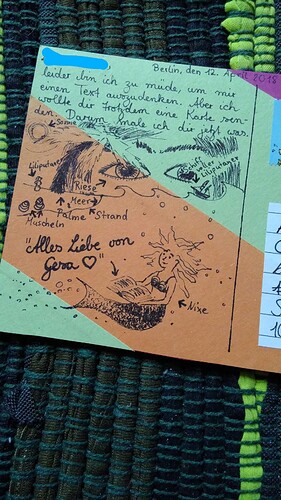 Berlin, den 12. April 2018
leider bin ich zu müde, um mir
einen Text auszudenken. Aber ich
wollte dir trotzdem eine Karte sen-
den. Darum male ich dir jetzt was.
Sonne
Schiff
voller
Liliputaner
Liliputaner
Riese
Meer
Palme Strand
Muscheln
"Alles Liebe von
Gesa ♡"
Nixe